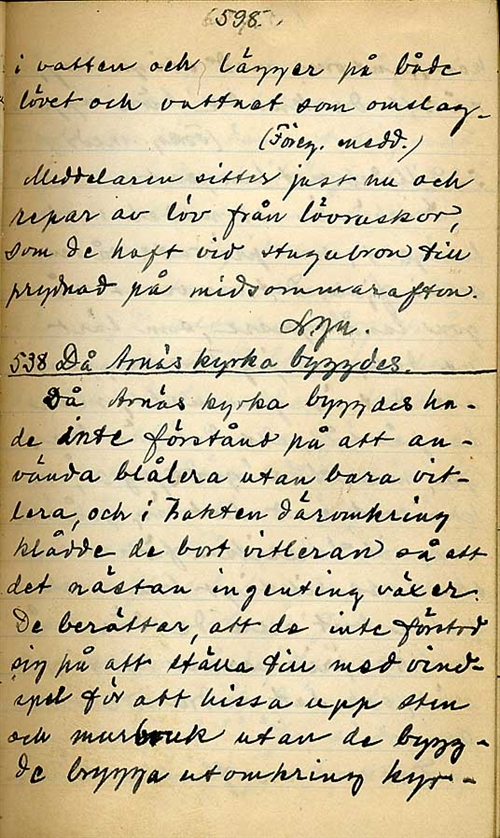 598.
i vatten och lägger på både
lövet och vattnet som omslag.
(Föreg. medd.)
Meddelaren sitter just nu och
repar av löv från lövruskor,
som de haft vid stugubron till
prydnad på midsommarafton.
538 Då Arnäs kyrka byggdes.
Då Arnäs kyrka byggdes ha-
de inte förstånd på att an-
vända blålera utan bara vit-
lera, och i trakten däromkring
klådde de bort vitleran så att
det nästan ingenting växer.
De berättar, att de inte förstod
sig på att ställa till med vind-
spel för att hissa upp sten
och murbruk utan de bygg-
de brygga utomkring kyr-